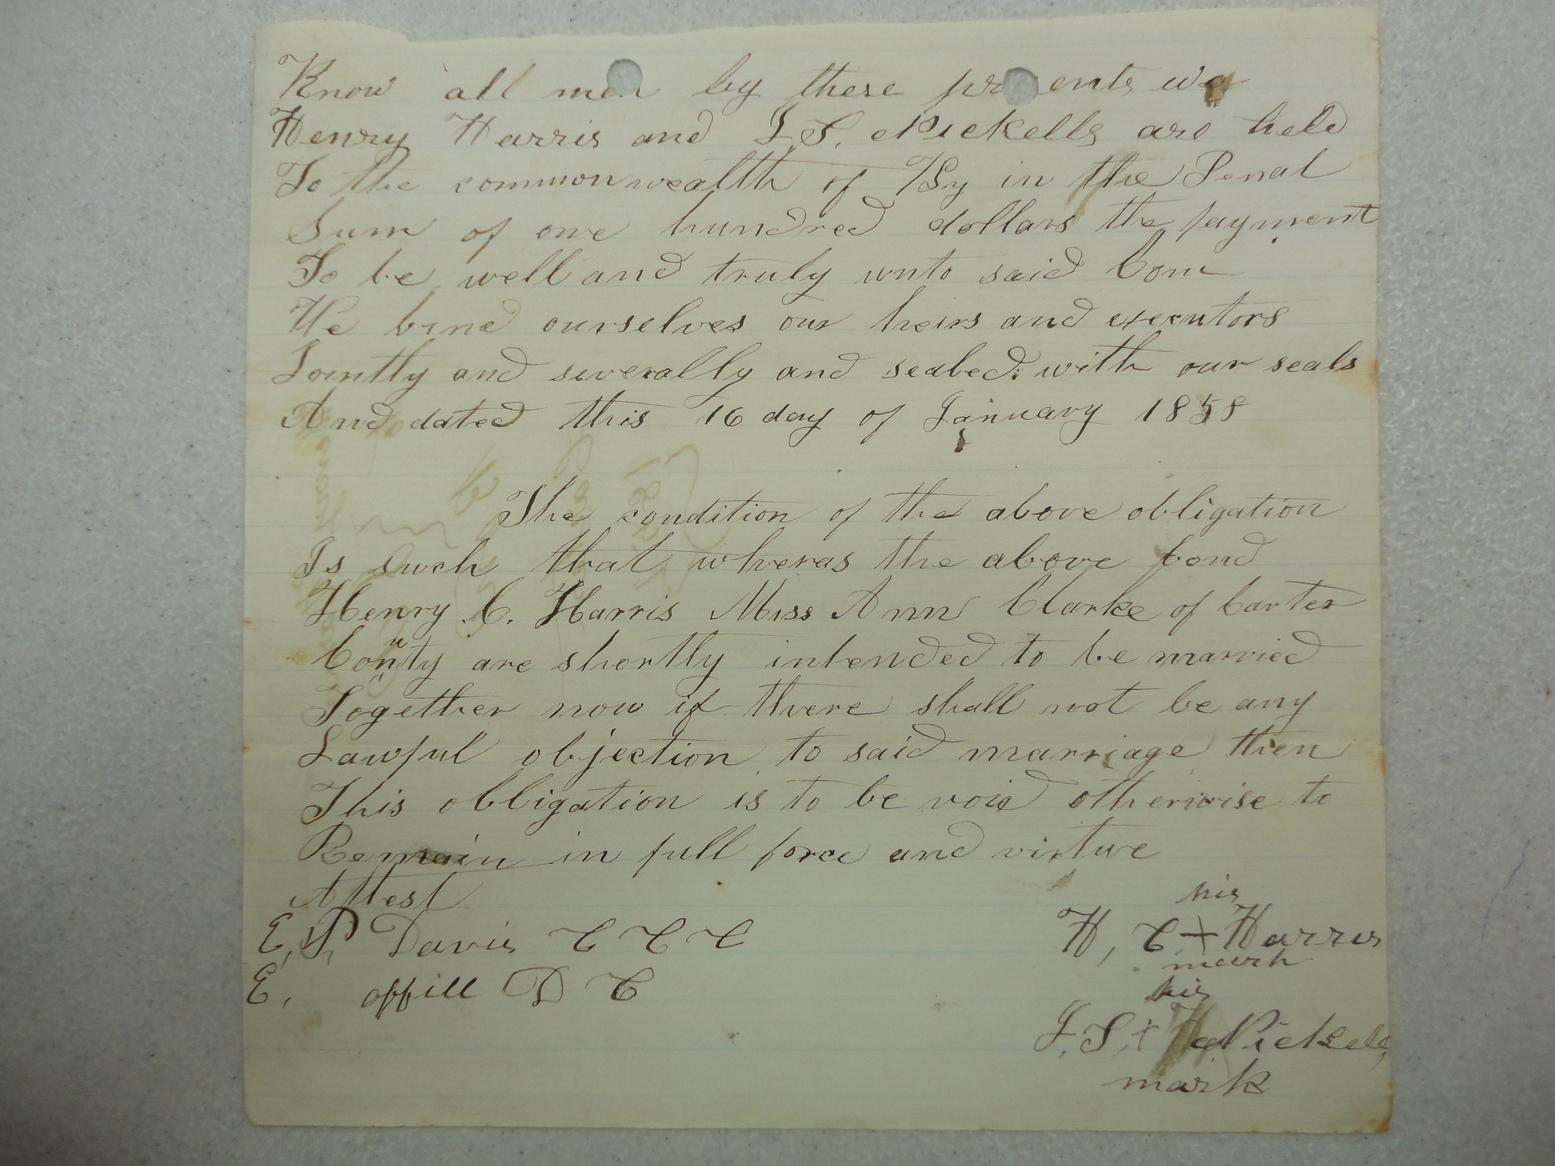 Know all men by these presents we
Henry Harris and J. S. Nickells are held
To the commonwealth of Ky in the Penal
Sum of one hundred dollars the payment
To be well and truly unto said Com
We bind ourselves our heirs and executors
Jointly and siverally and sealed with our seals
And dated this 16 day of January 1858
The condition of the above obligation
Is such that wheras the above bond
Henry C. Harris Miss Ann Clarke of Carter
County are shortly intended to be married
Together now if there shall not be any
Lawful objection to said marriage then
This obligation is to be void otherwise to
Remain in full force and virtue
Attest
E, P. Davis C C C
E. offill D C
his
H, C + Harris
mark
his
J. S. + Nickells
mark